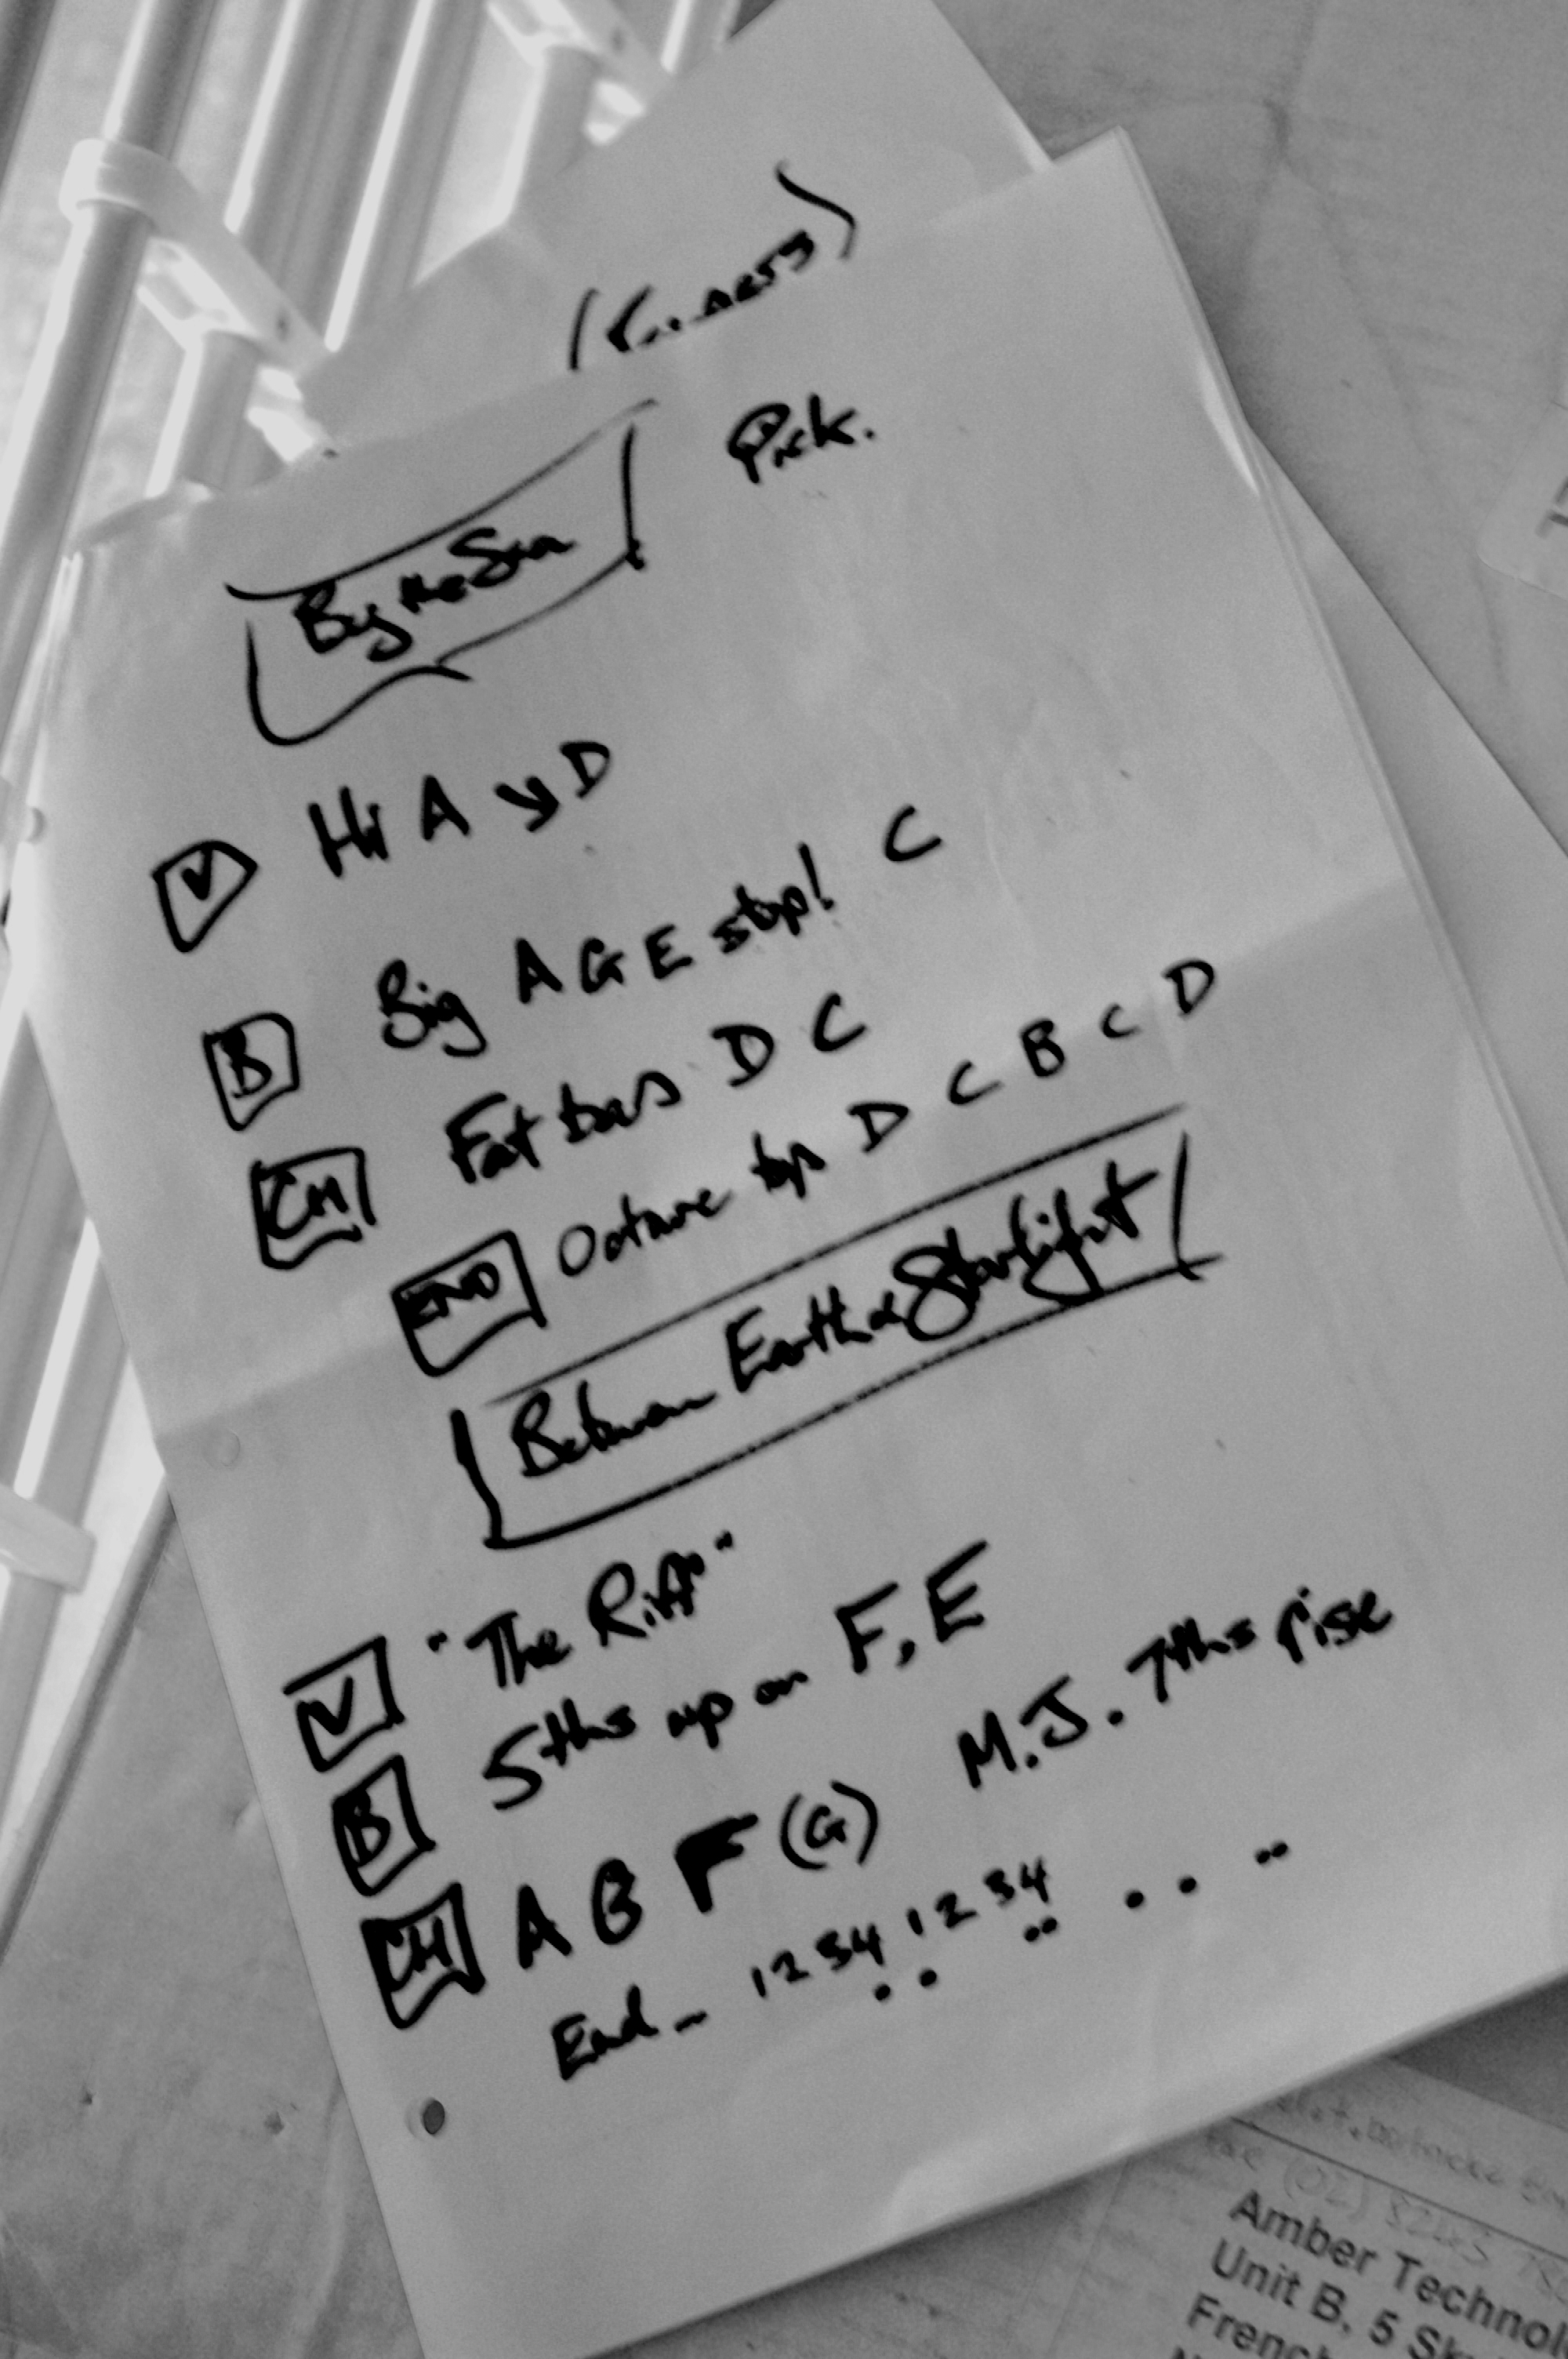 Pick.
By the Sea
V Hi A ↘ D
B Big A G E stop! C
CH Fat bars D C
END Octave top D C B C D
Between Earth & Starlight
V "The Riff"
B 5ths up on F, E
CH A B F (G) M.J. 7ths rise
End - 1 2 3 4 1 2 3 4
(02)
Amber Technol
Unit B, 5 Sk
French